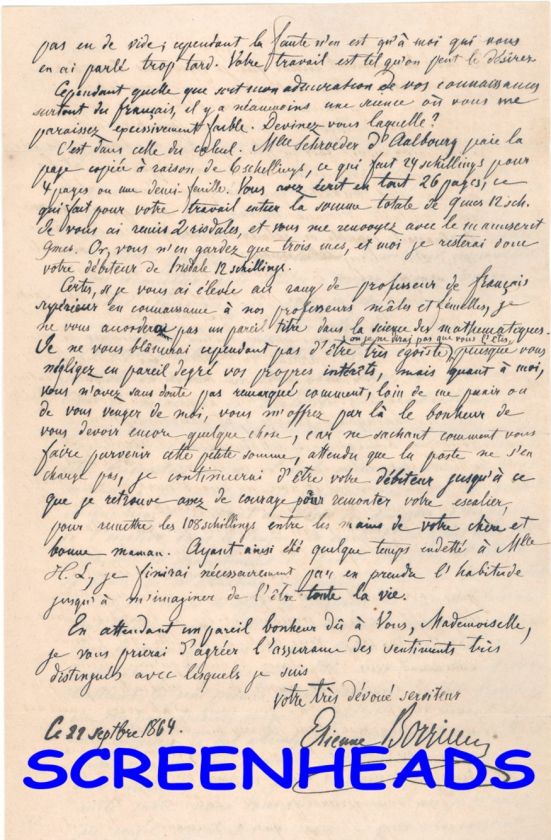 pas eu de vide; cependant la faute n'en est qu'à moi qui vous
en ai parlé trop tard. Votre travail est tel qu'on peut le désirer.
Cependant quelle que soit mon admiration de vos connaissances
surtout du français, il y a néanmoins une science où vous me
paraissez excessivement faible. Devinez vous laquelle?
C'est dans celle du calcul. Mlle Schroeder d'Aalbourg paie la
page copiée à raison de 6 schellings, ce qui fait 24 schillings pour
4 pages ou une demi feuille. Vous avez écrit en tout 26 pages, ce
qui fait pour votre travail entier la somme totale de 9 mcs 12 sch.
Je vous ai remis 2 risdales, et vous me renvoyez avec le manuscrit
9 mcs. Or, vous n'en gardez que trois mcs, et moi je resterai donc
votre débiteur de 1 risdale 12 schillings.
Certes, si je vous ai élevée au rang de professeur de français
supérieur en connaissance à nos professeurs mâles et femelles, je
ne vous accorderai pas un pareil titre dans la science des mathématiques.
Je ne vous blâmerai cependant pas d'être très égoïste (ou je ne dirai pas que vous l'êtes,) puisque vous
négligez en pareil degré vos propres intérêts, mais quant à moi,
vous n'avez sans doute pas remarqué comment, loin de me punir ou
de vous venger de moi, vous m'offrez par là le bonheur de
vous devoir encore quelque chose, car ne sachant comment vous
faire parvenir cette petite somme, attendu que la poste ne s'en
charge pas, je continuerai d'être votre débiteur jusqu'à ce
que je retrouve assez de courage pour remonter votre escalier,
pour remettre les 108 schillings entre les mains de votre chère et
bonne maman. Ayant ainsi été quelque temps endetté à Mlle
H. L, je finirai nécessairement par en prendre l'habitude
jusqu'à m'imaginer de l'être toute la vie.
En attendant un pareil bonheur dû à Vous, Mademoiselle,
je vous prierai d'agréer l'assurance des sentiments très
distingués avec lesquels je suis
votre très dévoué serviteur
Ce 22 septbre 1864.
Etienne
SCREENHEADS